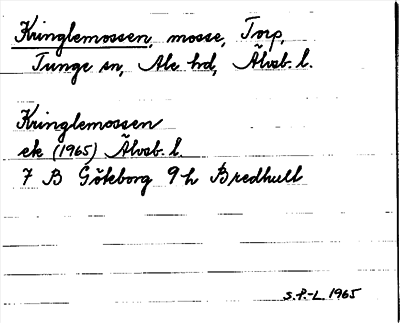 Kringlemossen, mosse, Torp,
Tunge sn, Ale hd, Älvsb. l.
Kringlemossen
ek (1965) Älvsb. l.
7 B Göteborg 9 h Bredhult
S.P.-L. 1965